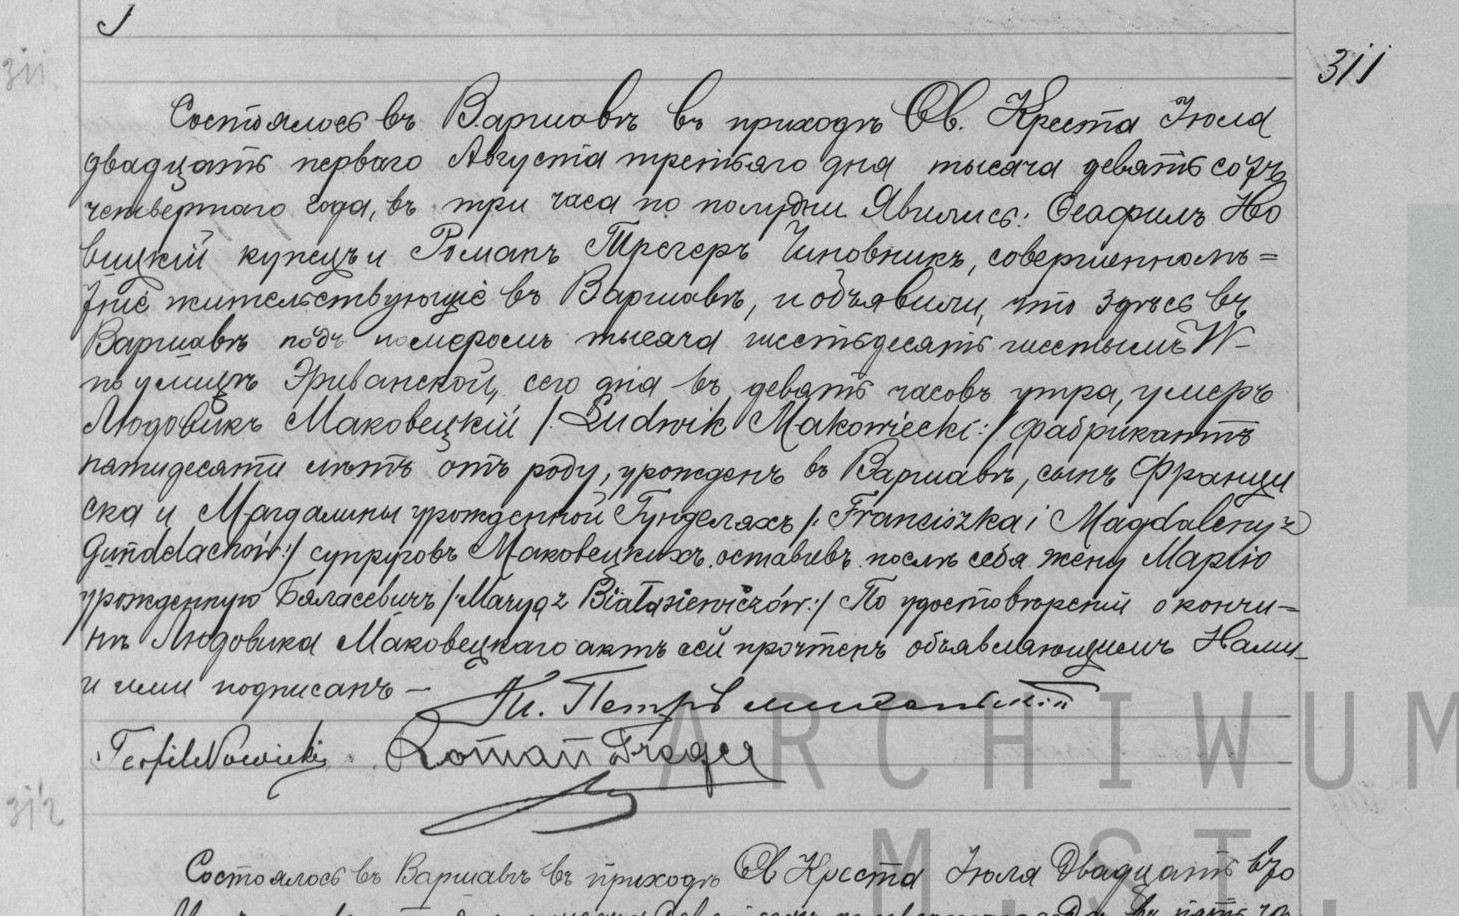 311
311
Состоялось въ Варшавѣ въ приходѣ Св. Креста Іюля
двадцать перваго Августа третьяго дня тысяча девятьсотъ
четвертаго года, въ три часа по полудни. Явились: Теафилъ Но
вицкій купецъ и Романъ Трегеръ Чиновникъ, совершеннолѣ=
тніе жительствующіе въ Варшавѣ, и объявили, что здѣсь въ
Варшавѣ подъ номеромъ тысяча шестьдесятъ шестымъ W-
по улицѣ Эриванской, сего дня въ девять часовъ утра, умеръ
Людовикъ Маковецкій /:Ludwik Makowiecki:/ фабрикантъ
пятидесяти лѣтъ отъ роду, урожденъ въ Варшавѣ, сынъ Франци
ска и Магдалины урожденной Гунделяхъ /: Franciszka i Magdaleny z
Gundelachów:/ супруговъ Маковецкихъ, оставивъ послѣ себя жену Марію
урожденную Бяласевичъ /:Maryą z Białasiewiczów:/ По удостовѣреніи о кончи=
нѣ Людовика Маковецкаго актъ сей прочтенъ объявляющимъ Нами
и ими подписанъ –
Кс. Петръ
Teofil Nowicki
Roman Trager
312
Состоялось въ Варшавѣ въ приходѣ Св Креста Іюля Двадцать вто
ARCHIWUM
M. ST.